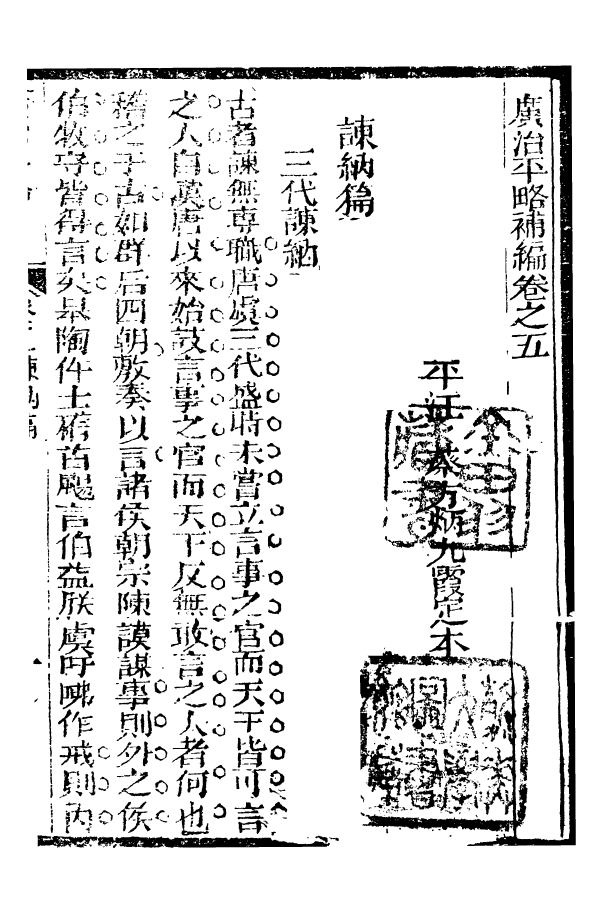 廣治平略補編卷之五
平江蔡方炳九霞定本
諫納篇
三代諫納
古者諫無專職唐虞三代盛時未嘗立言事之官而天下皆可言
之人自漢唐以來始設言事之官而天下反無敢言之人者何也
稽之于古如群后四朝敷奏以言諸侯朝宗陳謨謀事則外之侯
伯牧守皆得言矣皋陶作士稽首颺言伯益朕虞吁咈作戒則內